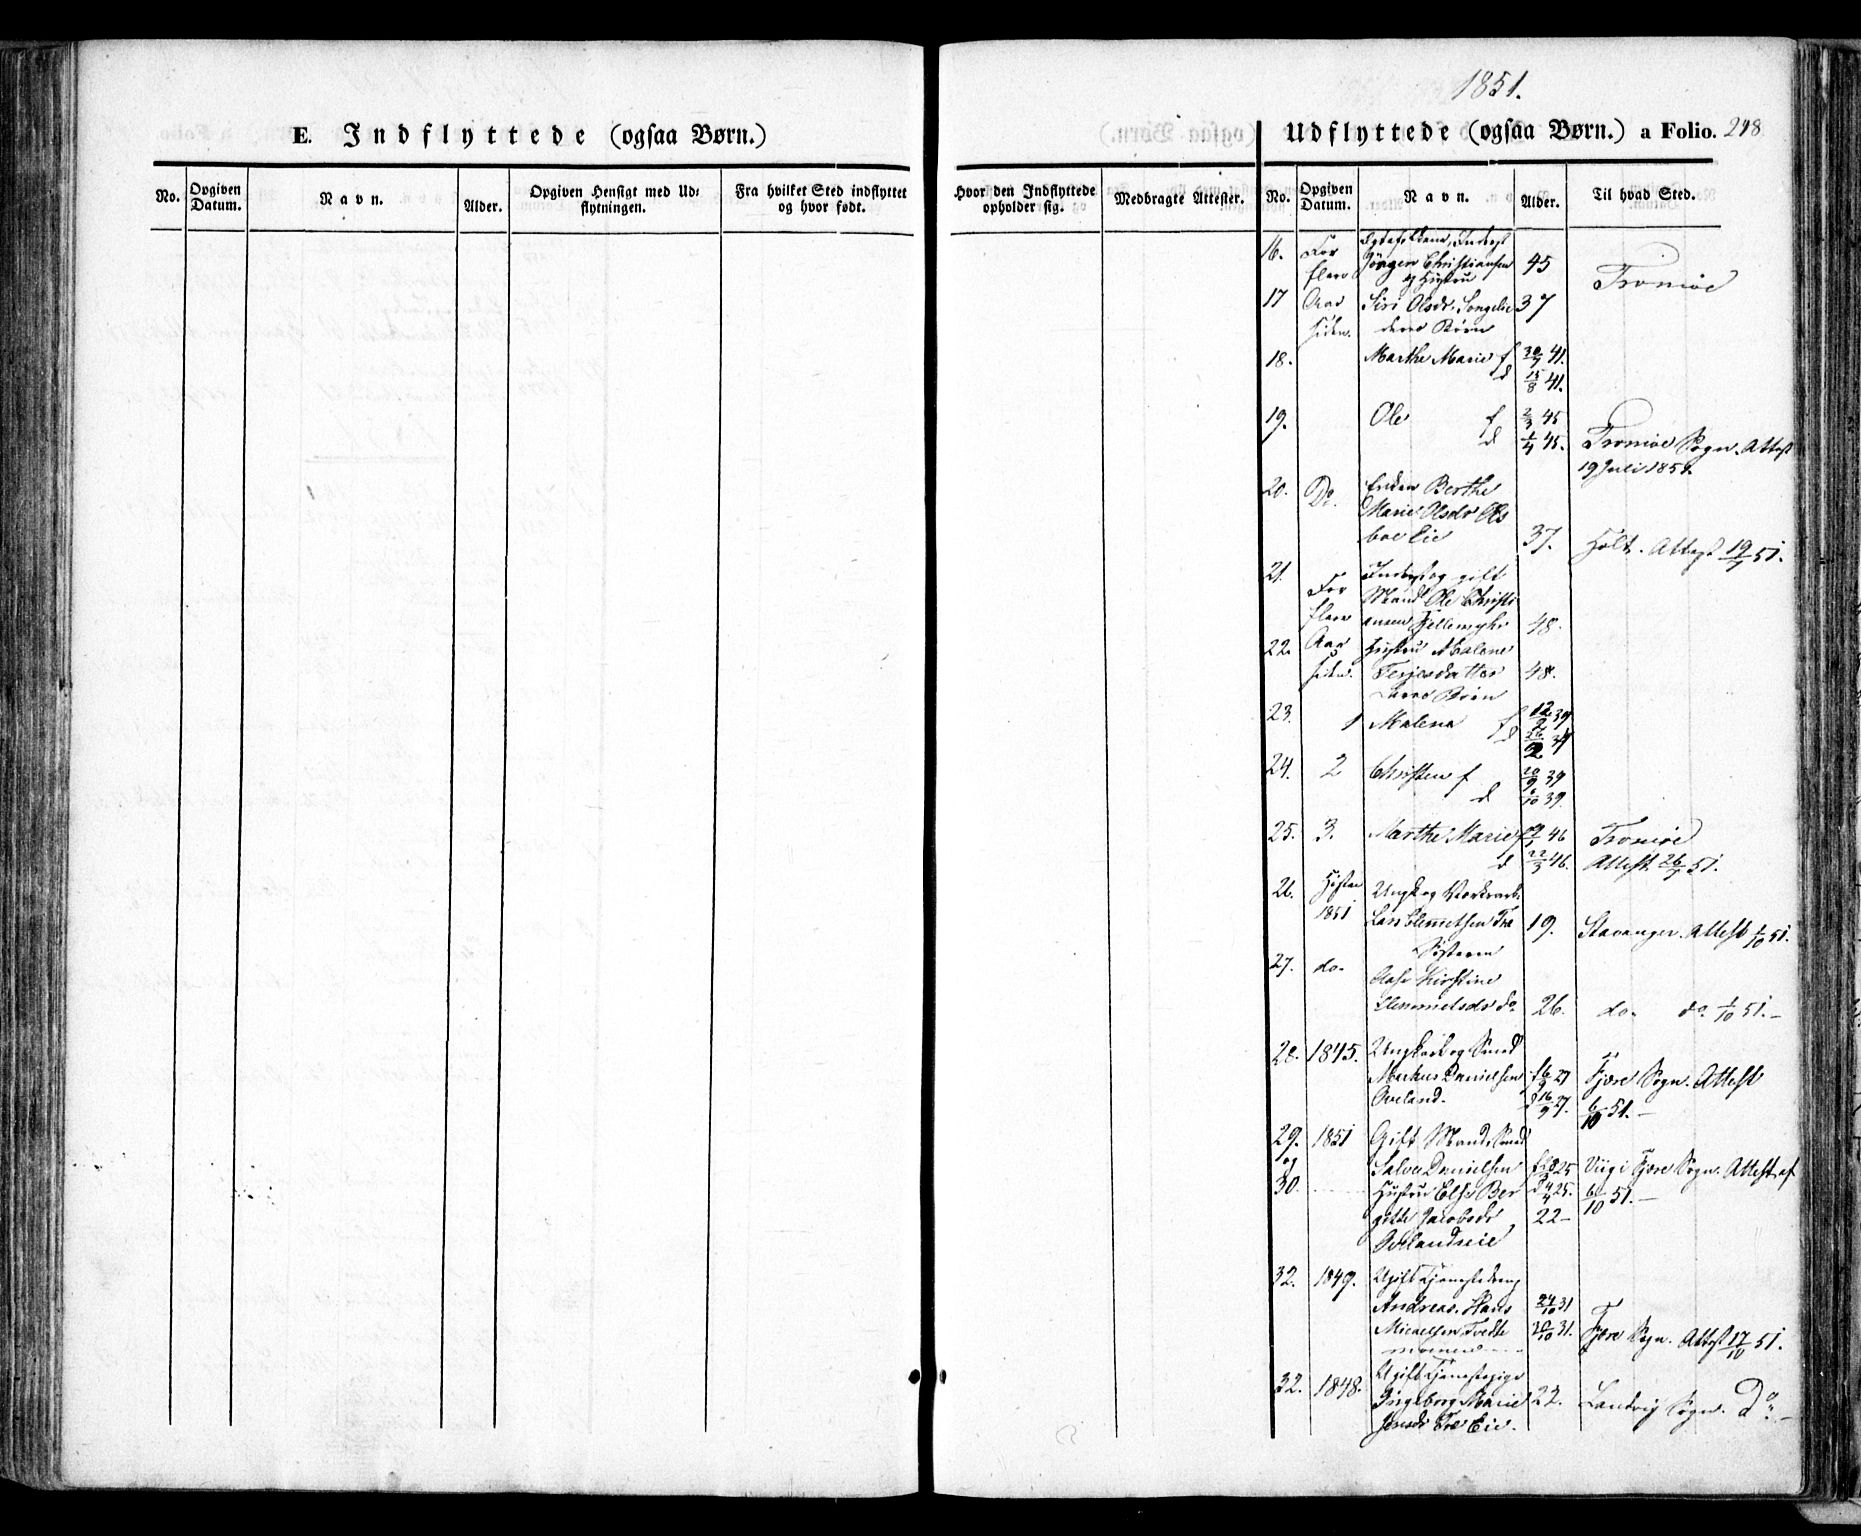 1851.
E. Indflyttede (ogsaa Børn.)
Udflyttede (ogsaa Børn.) a Folio. 248
No. Opgiven Datum. Navn. Alder. Opgiven Hensigt med Udflytningen. Fra hvilket Sted indflyttet og hvor født.
Hvor den Indflyttede opholder sig. Medbragte Attester. No. Opgiven Datum. Navn. Alder. Til hvad Sted.
16. For
flere Jörgen Christiansen 45 Tromöe
og Hustru
17 Aar Siri Olsdr. Songeeie 37
siden. deres Börn
18. Marthe Marie f 30/7 41.
d 15/8 41.
19. Ole f 2/3 45
d 1/4 45. Tromöe Sogn. Attest
19 Juli 1851.
20. Do. Enken Berthe
Marie Olsdr
boe Eie 37. Holt. Attest 19/7 51.
21. For Inderst og gift
Mand Ole Christi
flere ansen 48.
22. Aar Hustru Malene
siden. Terjesdatter 48.
deres Börn
23. 1 Malena f 12/2 39
d
24. 2 Christen f 20/9 39
d 6/10 39
25. 3. Marthe Marie f 46 Tromöe
d 22/3 46. Attest 26/7 51.
26. Høsten Ungk og
1851 Lars Clemmetsen Træ 19. Stavanger. Attest 1/10 51.
Søsteren
27. do. Aase Kirstine
Clemmetsdr do 26. do. do. 1/10 51.–
28. 1845. Ungkarl og Smed
Markus Danielsen f 6/9 27 Fjære Sogn. Attest
Aveland. d 16/9 27. 6/10 51.–
29. 1851 Gift Mand, Smed
og Salve Danielsen 25 Viig i Fjære Sogn. Attest af
30. Hustru Else Ber d 4/4 25. 6/10 51.–
gitte Jacobsdr 22–
Avelandseie
32. 1849. Ugift Tjenestedreng
Andreas Hans 24/10 31
Micaelsen Tvedte 30/10 31. Fjære Sogn. Attest 17/10 51.
32. 1848. Ugift Tjenestepige
Ingeborg Marie 22. Landvig Sogn. Do.–
Jensdr Træ Eie.